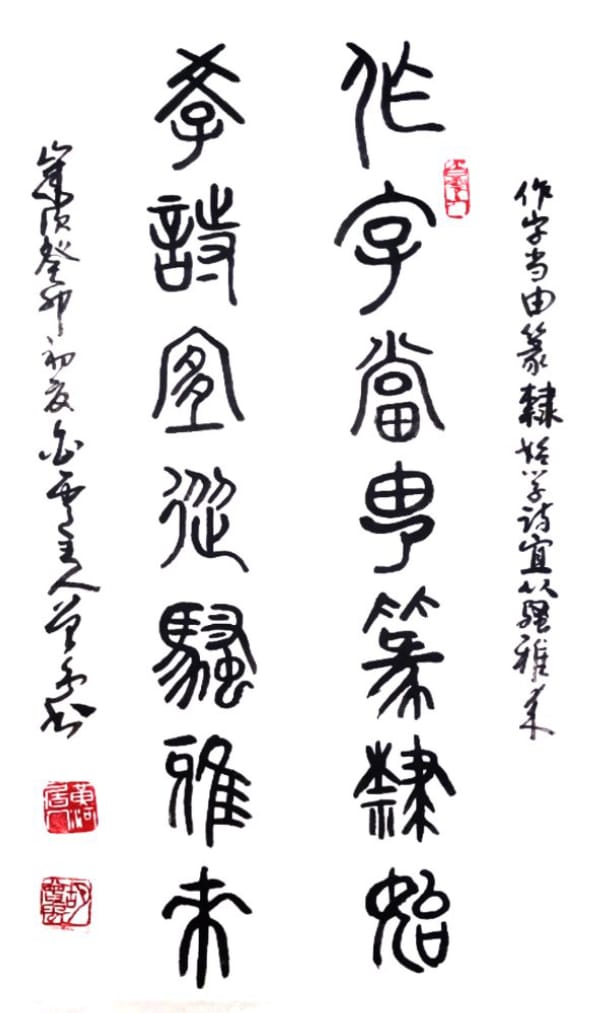 作字当由篆隸始学诗宜从骚雅来
作字當由篆隸始
學詩宜從騷雅來
歲次癸卯初夏主人书